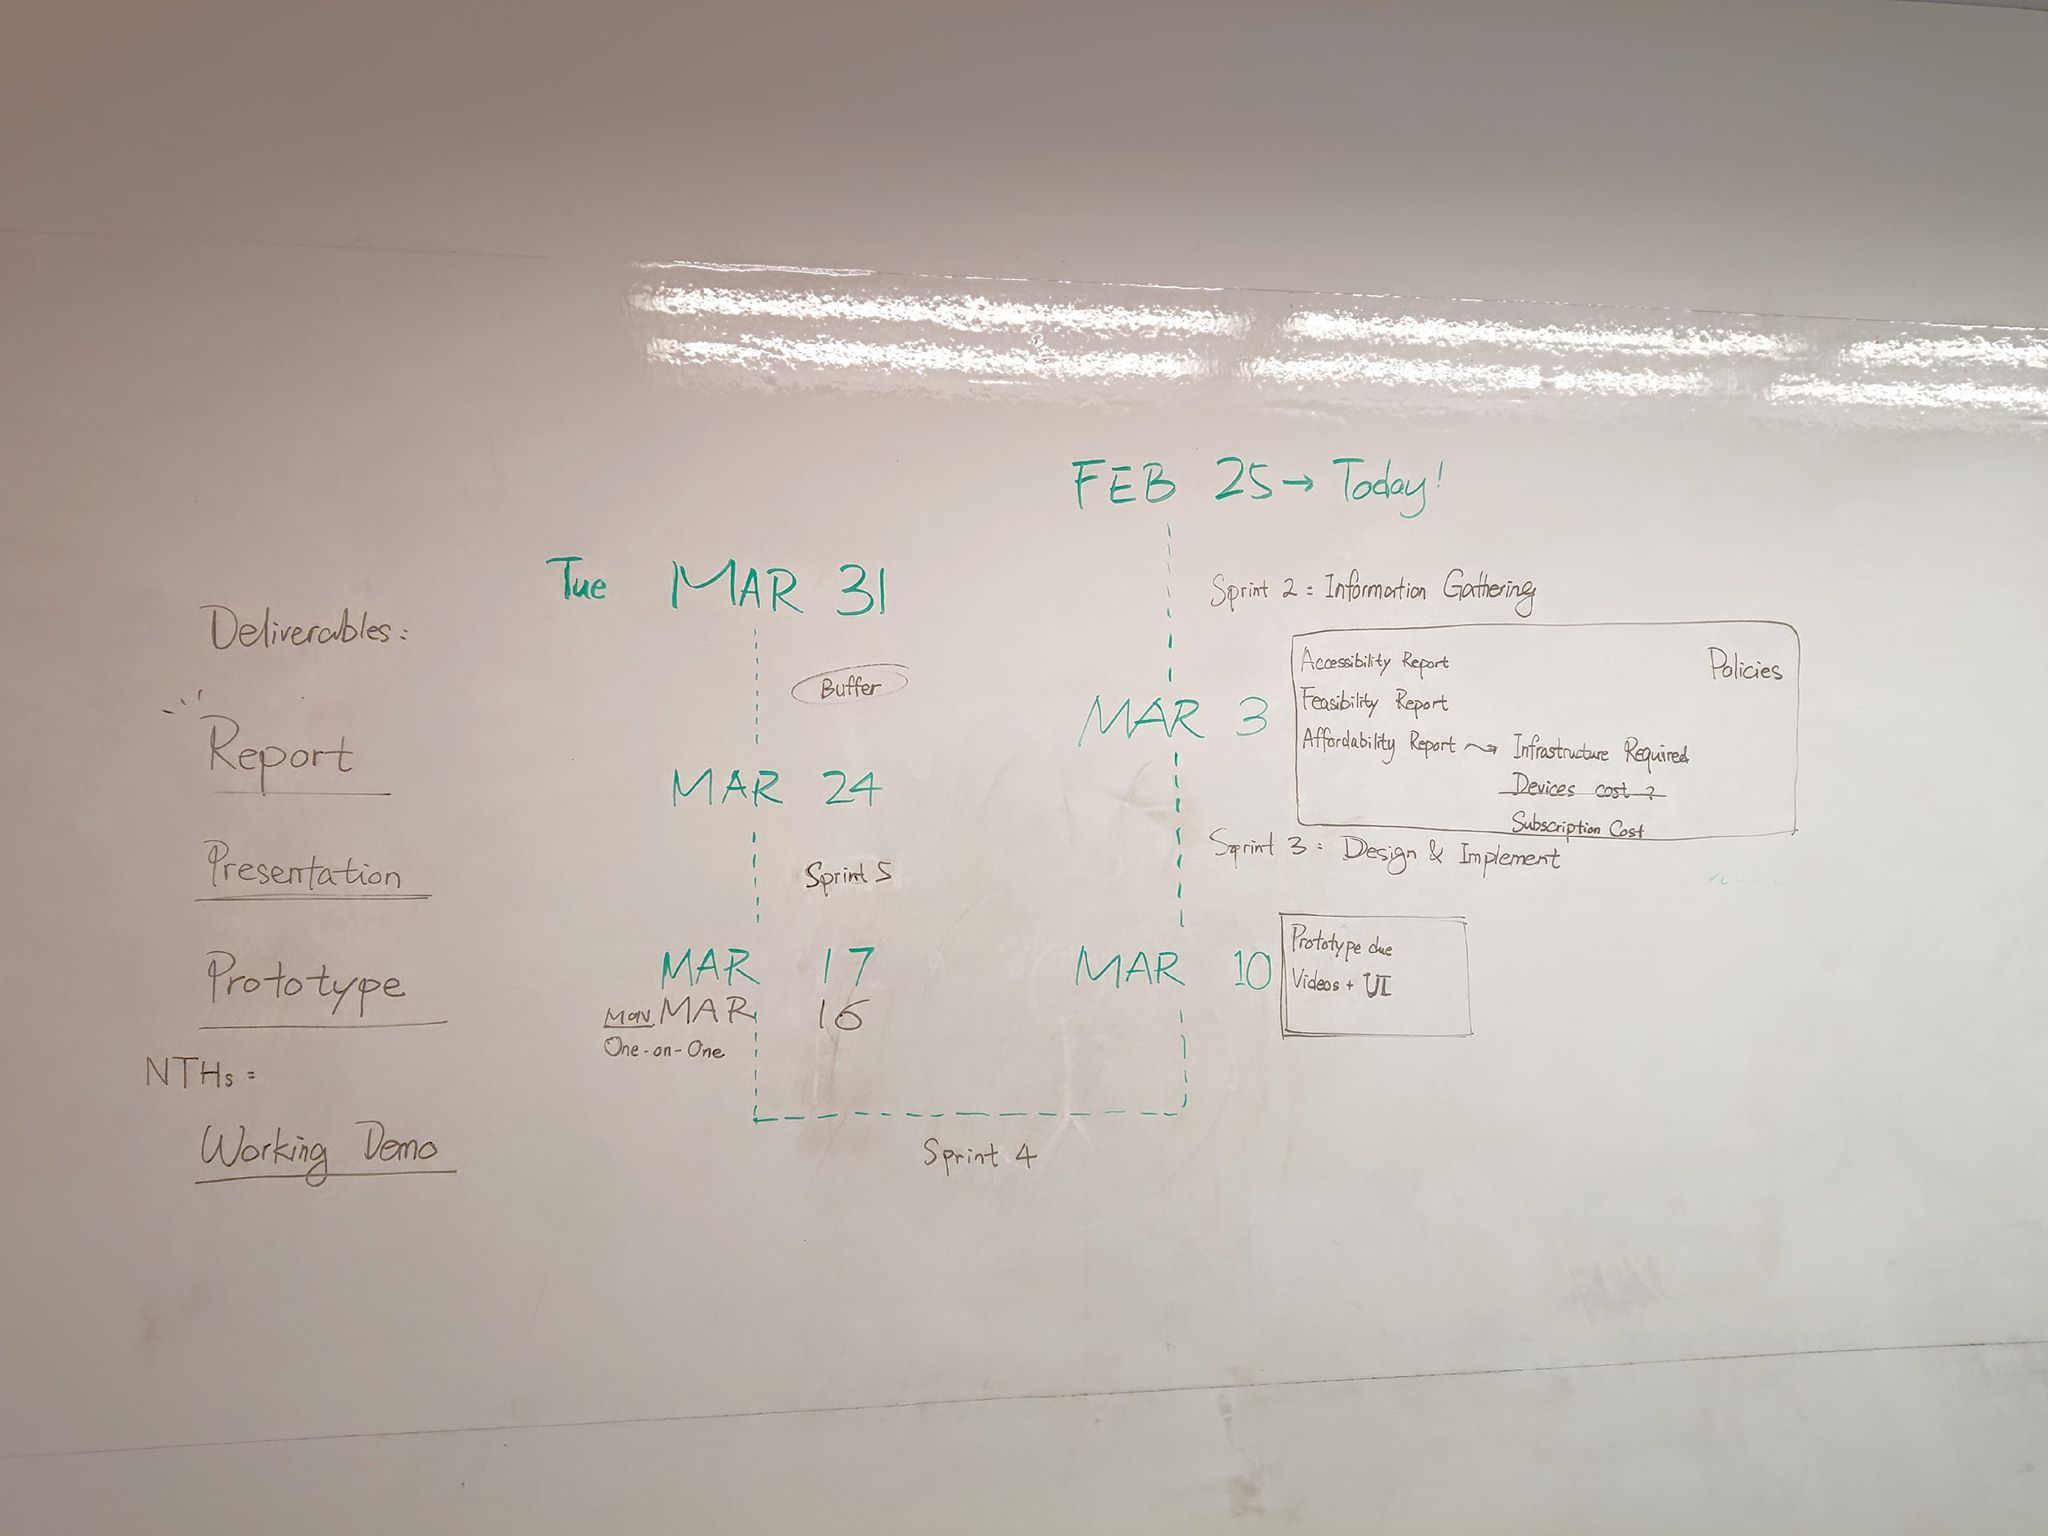 Deliverables:
Report
Presentation
Prototype
NTHs:
Working Demo
Tue MAR 31
Buffer
MAR 24
Sprint 5
MAR 17
MON. MAR 16
One-on-One
Sprint 4
FEB 25 → Today!
Sprint 2: Information Gathering
MAR 3
Accessibility Report
Policies
Feasibility Report
Affordability Report → Infrastructure Required
Devices cost ?
Subscription Cost
Sprint 3: Design & Implement
MAR 10
Prototype due
Videos + UI